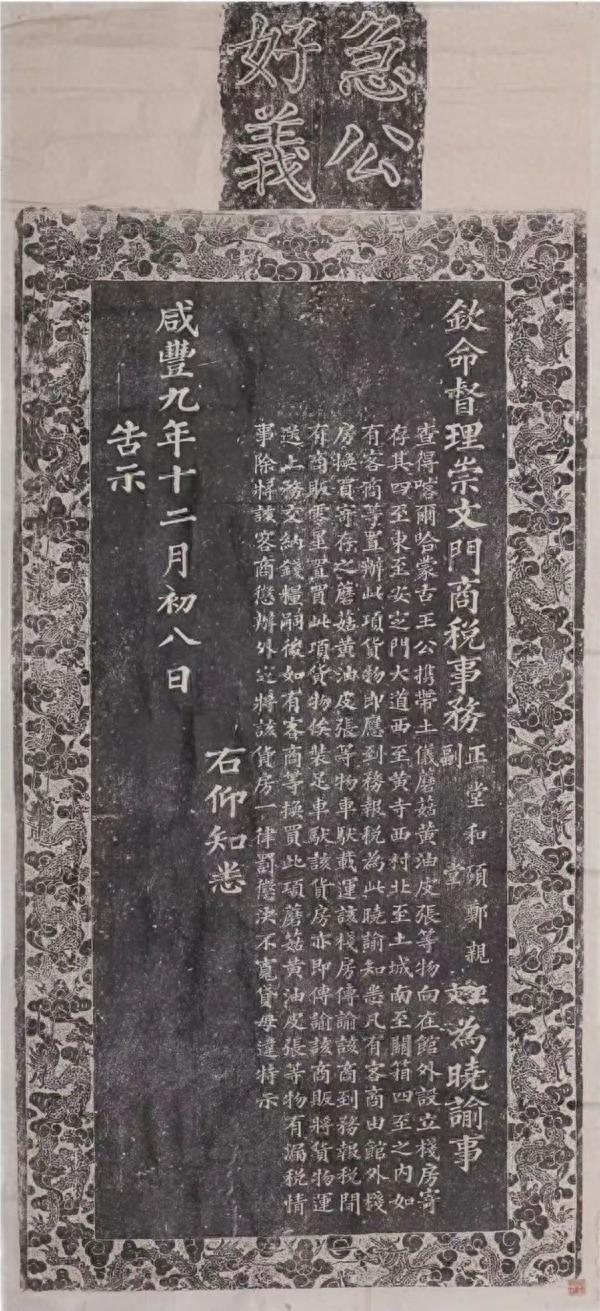 急公
好義
欽命督理崇文門商稅事務
正堂和碩鄭親王
副堂
為曉諭事
查得喀爾哈蒙古王公携帶土儀蘑菇黃油皮張等物向在館外設立棧房寄
存其四至東至安定門大道西至黃寺西村北至土城南至關箱四至之內如
有客商等置辦此項貨物即應到務報稅為此曉諭知悉凡有客商由館外棧
房換買寄存之蘑菇黃油皮張等物車馱載運該棧房傳諭該商到務報稅間
有商販零星置買此項貨物俟裝足車馱該貨房亦即傳諭該商販將貨物運
送上務交納錢糧嗣後如有客商等換買此項蘑菇黃油皮張等物有漏稅情
事除將該客商懲辦外定將該貨房一律罰懲決不寬貸毋違特示
右仰知悉
咸豐九年十二月初八日
告示